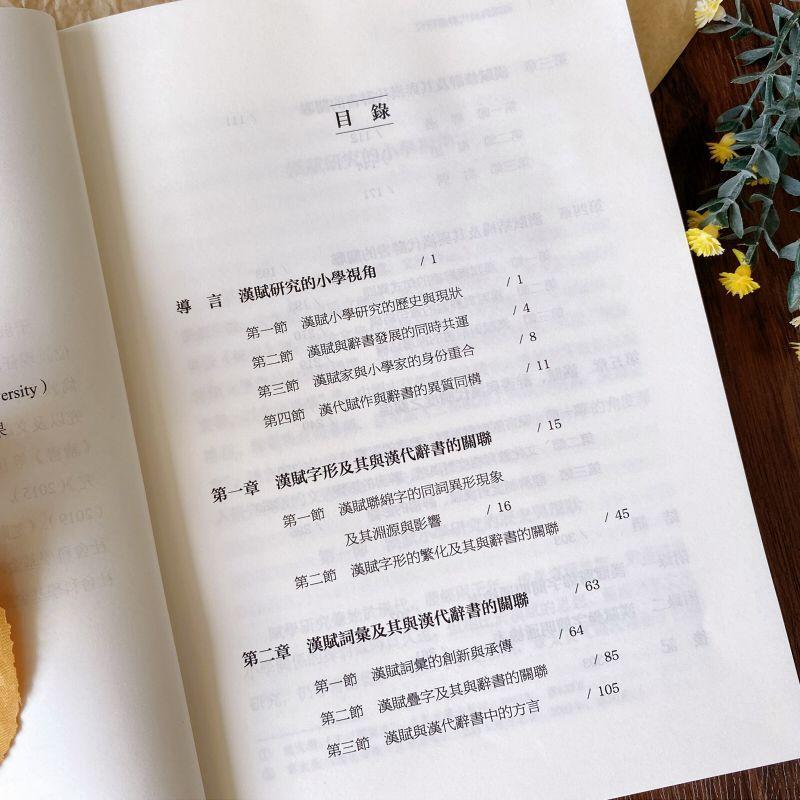 ersity）
果
目 錄
導 言 漢賦研究的小學視角 / 1
第一節 漢賦小學研究的歷史與現狀 / 1
第二節 漢賦與辭書發展的同時共運 / 4
第三節 漢賦家與小學家的身份重合 / 8
第四節 漢代賦作與辭書的異質同構 / 11
第一章 漢賦字形及其與漢代辭書的關聯 / 15
第一節 漢賦聯綿字的同詞異形現象
及其淵源與影響 / 16
第二節 漢賦字形的繁化及其與辭書的關聯 / 45
第二章 漢賦詞彙及其與漢代辭書的關聯 / 63
第一節 漢賦詞彙的創新與承傳 / 64
第二節 漢賦疊字及其與辭書的關聯 / 85
第三節 漢賦與漢代辭書中的方言 / 105